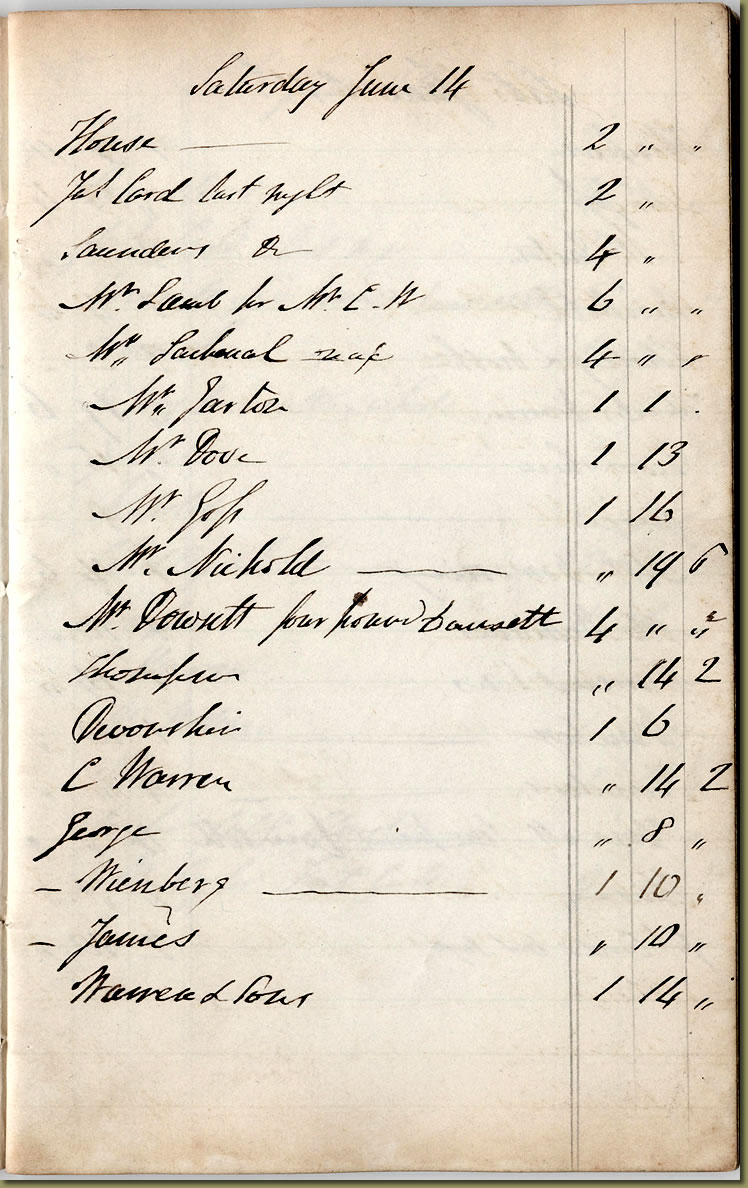 Saturday June 14
House — 2 " "
Jas Card last night 2 "
Saunders Do 4 "
Mr. Lamb for Mr. C. W 6 " "
Mr. 4 " "
Mr. Garton 1 1 .
Mr. Dove 1 13
Mr. Goss 1 16
Mr. Nichold — " 19 6
Mr. Dowsett four pound Dowsett 4 " "
Thompson " 14 2
Devonshire 1 6
C Warren " 14 2
George " 8 "
– Wienberg — 1 10 "
– James " 10 "
Warren & Sons 1 14 "